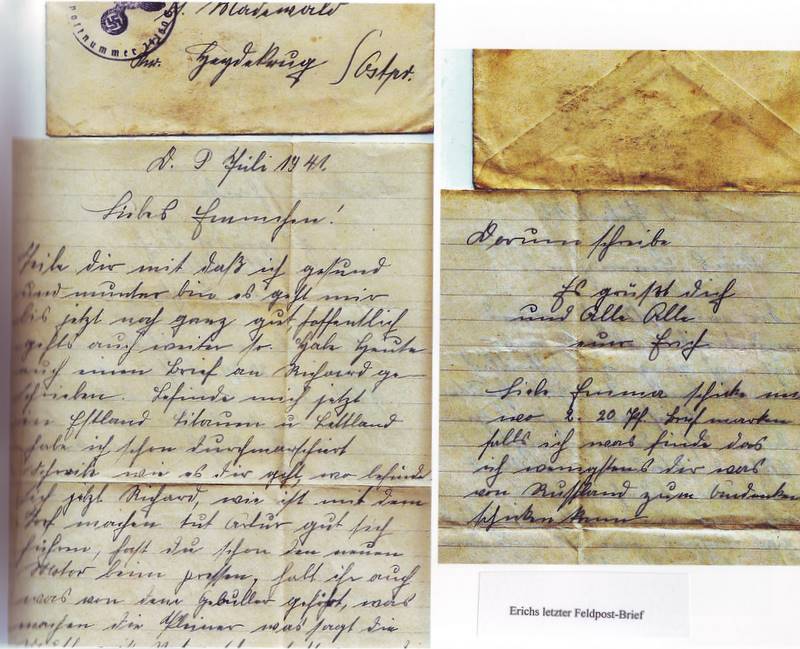 Feldpostnummer
Madewald
Heydekrug / Ostpr.
D. 9 Juli 1941.
Liebes Emmchen!
Teile dir mit daß ich gesund
und munter bin es geht mir
bis jetzt noch ganz gut, hoffentlich
gehts auch weiter so. Habe Heute
auch einen Brief an Richard ge
schrieben. Befinde mich jetzt
in Estland Litauen u Lettland
habe ich schon durchmarschiert
Schreib wie es dir geht, wo befindet
sich jetzt Richard, wie ist mit dem
machen tut Artur gut sich
führen, hast du schon den neuen
Motor beim pressen, habt ihr auch
was von dem gehört, was
machen die was sagt die
Darum schreibe
Es grüßt dich
und Alle Alle
euer Erich
Liebe Emma schicke
wo 2. 20 Pf. Briefmarken
falls ich was finde das
ich wenigstens dir was
von Russland zum Andenken
schicken kann
Erichs letzter Feldpost-Brief